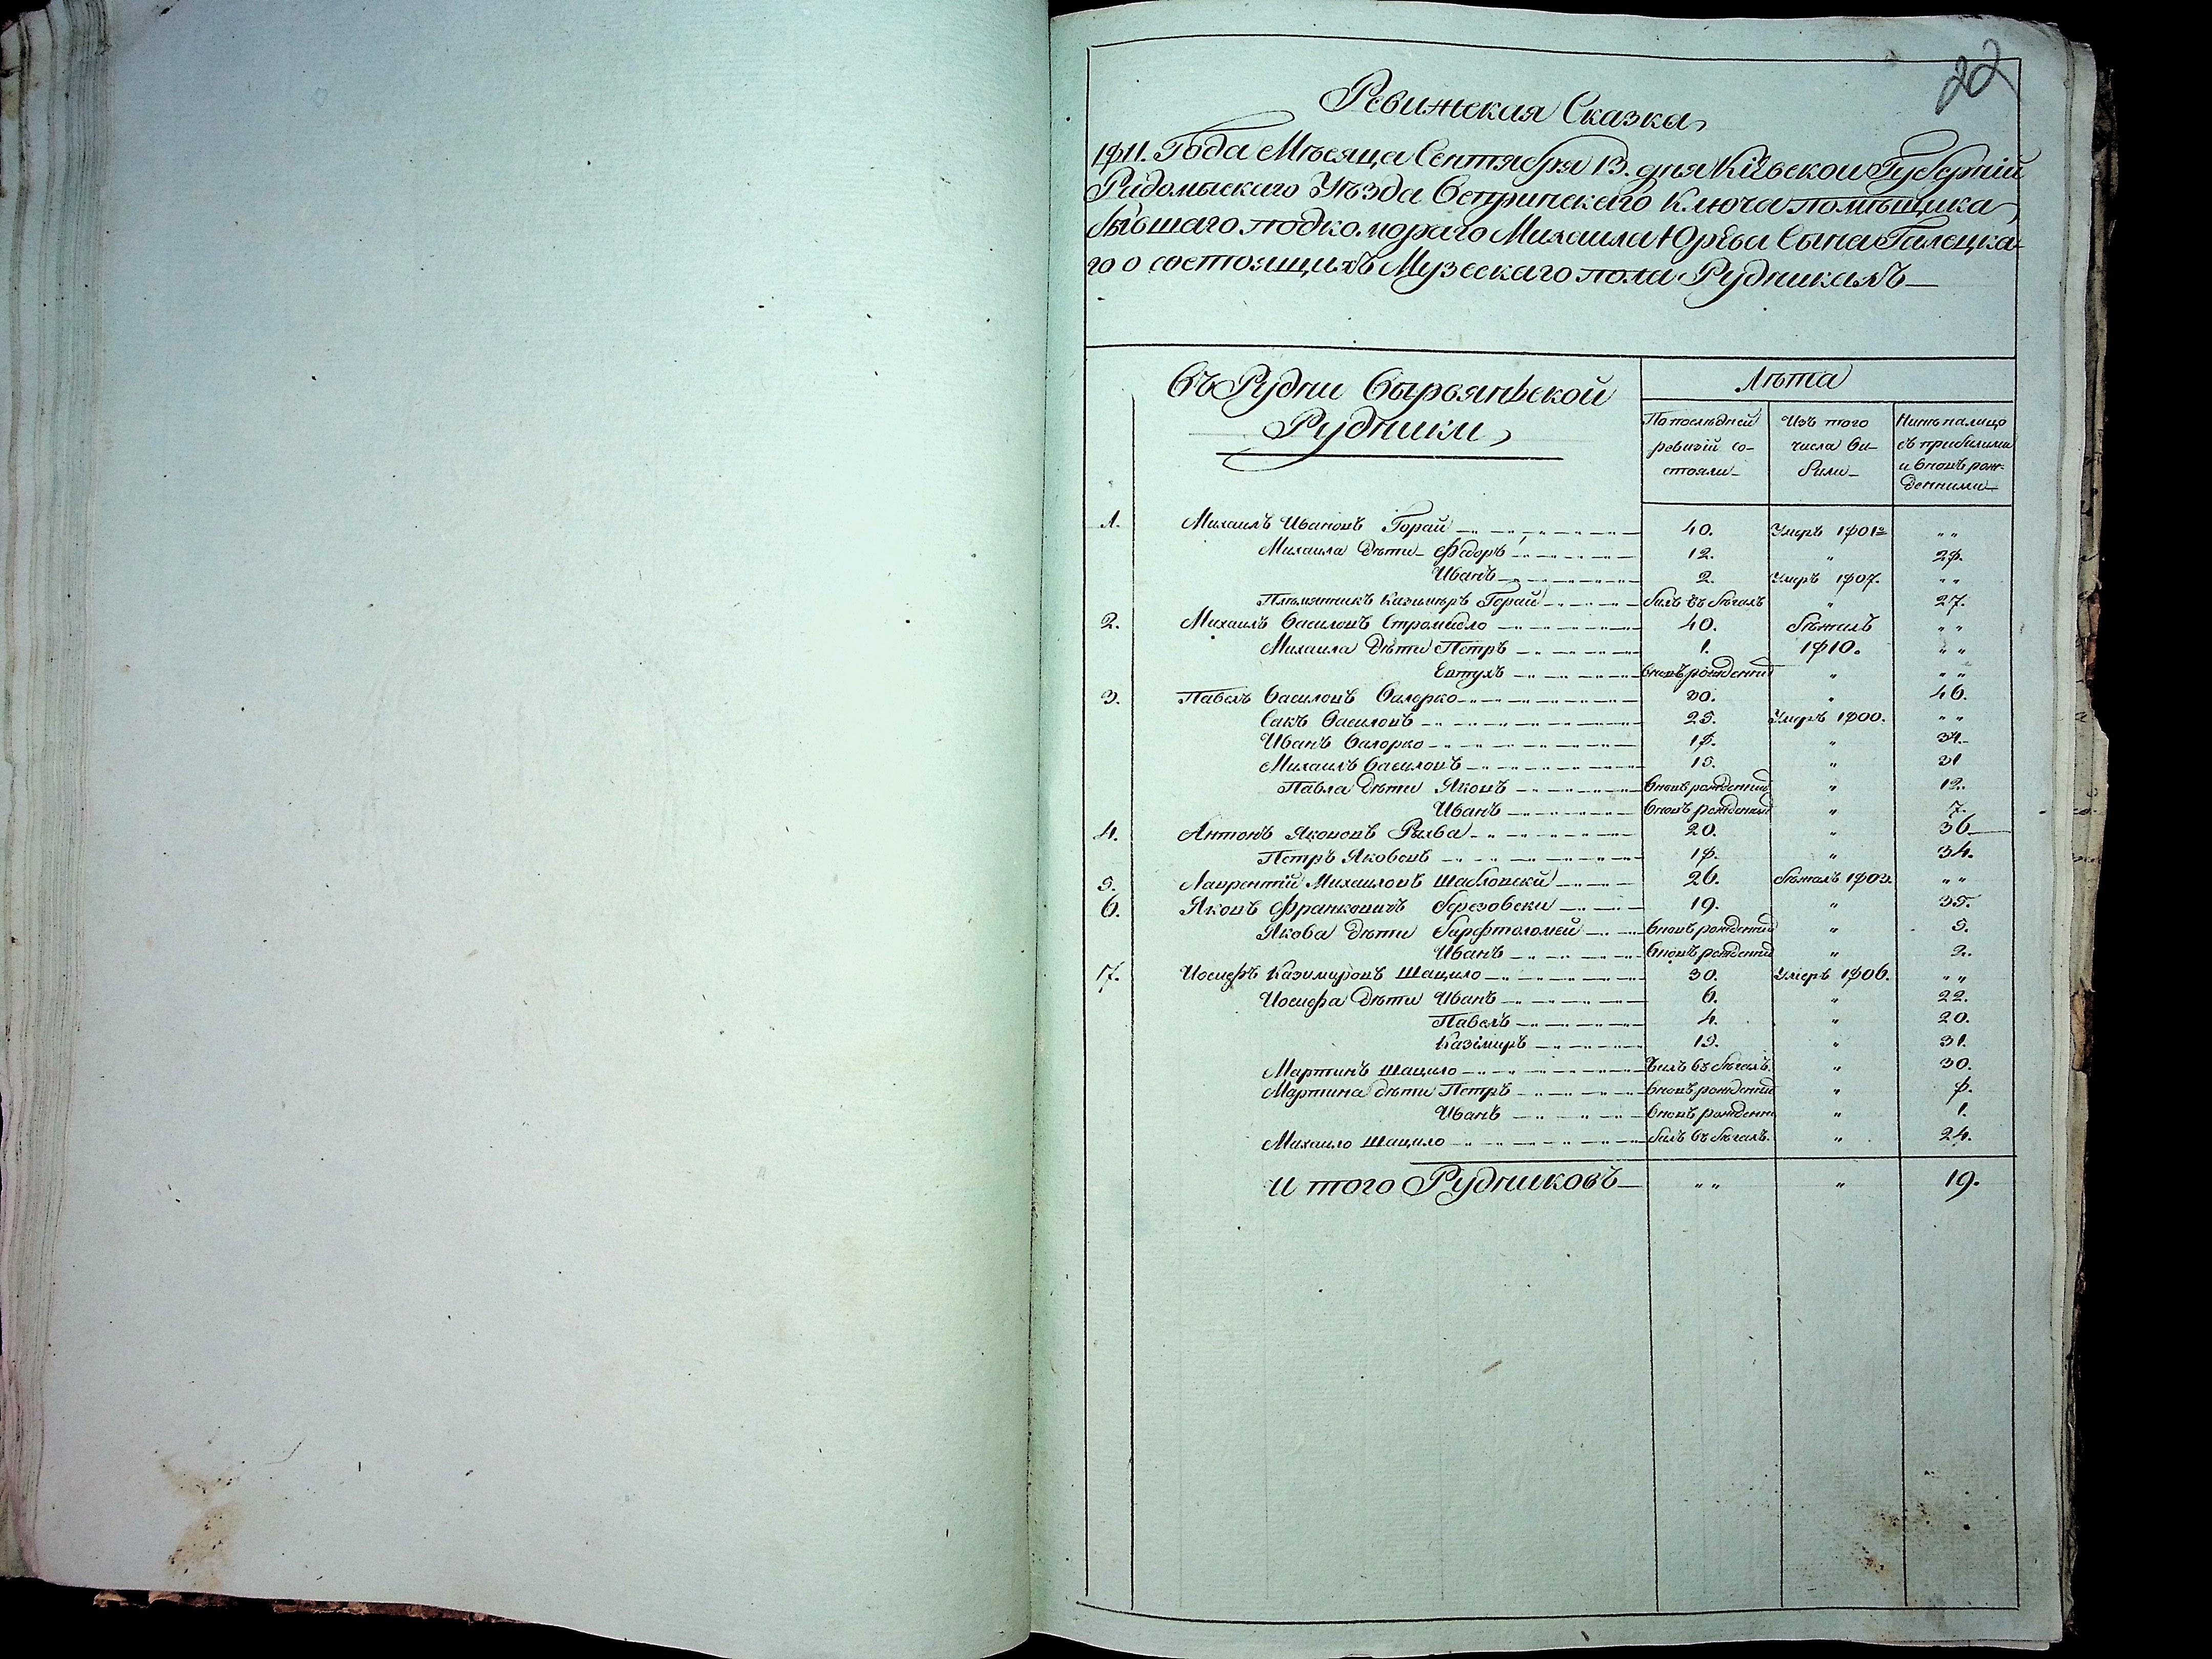 22
Ревижская Сказка
1811. Года Мѣсяца Сентября 13. дня Кіевской Губерніи
Радомыскаго Уѣзда Вепринскаго Ключа помѣщика
бывшаго подкомораго Михаила Юрьева Сына Галецка-
го о состоящихъ Музескаго пола Рудникахъ
Въ Рудни Вырвянской
Рудники
Лѣта
По послѣдней ревизій со- стояли
Изъ того числа Ви- били
Нинѣ налицо съ прибилими и вновъ рож- денними
1. Михаилъ Ивановъ Горай 40. Умеръ 1801г „ „
Михаила дѣти Федоръ 12. „ 28.
Иванъ 2. Умеръ 1807. „ „
Племянникъ Казимѣръ Горай билъ въ бѣгахъ „ 27.
2. Михаилъ Василовъ 40. бѣжалъ „ „
Михаила дѣти Петръ 1. 1810. „ „
Евтухъ вновъ рожденний „ „ „
3. Павелъ Василовъ Валерко 30. „ 46.
Сакъ Василовъ 25. Умеръ 1800. „ „
Иванъ Валорко 18. „ 34.
Михаилъ Василовъ 15. „ 31
Павла дѣти Яковъ вновъ рожденний „ 12.
Иванъ вновъ рожденний „ 7.
4. Антонъ Якововъ Рыва 20. „ 36
Петръ Яковевъ 18. „ 34.
5. Лаврентій Михаиловъ Шабловскй 26. бѣжалъ 1803. „ „
6. Яковъ Франковичъ березовски 19. „ 35.
Якова дѣти барфтоломей вновъ рожденний „ 5.
Иванъ вновъ рожденний „ 2.
7. Иосифъ Казимировъ Шацило 30. Умеръ 1806. „ „
Иосифа дѣти Иванъ 6. „ 22.
Павелъ 4. „ 20.
Казімиръ 15. „ 31.
Мартинъ Шацило билъ въ бѣгахъ. „ 30.
Мартина дѣти Петръ вновъ рожденний „ 8.
Иванъ вновъ рожденни „ 1.
Михаило Шацило билъ въ бѣгахъ. „ 24.
И того Рудниковъ „ „ „ 19.